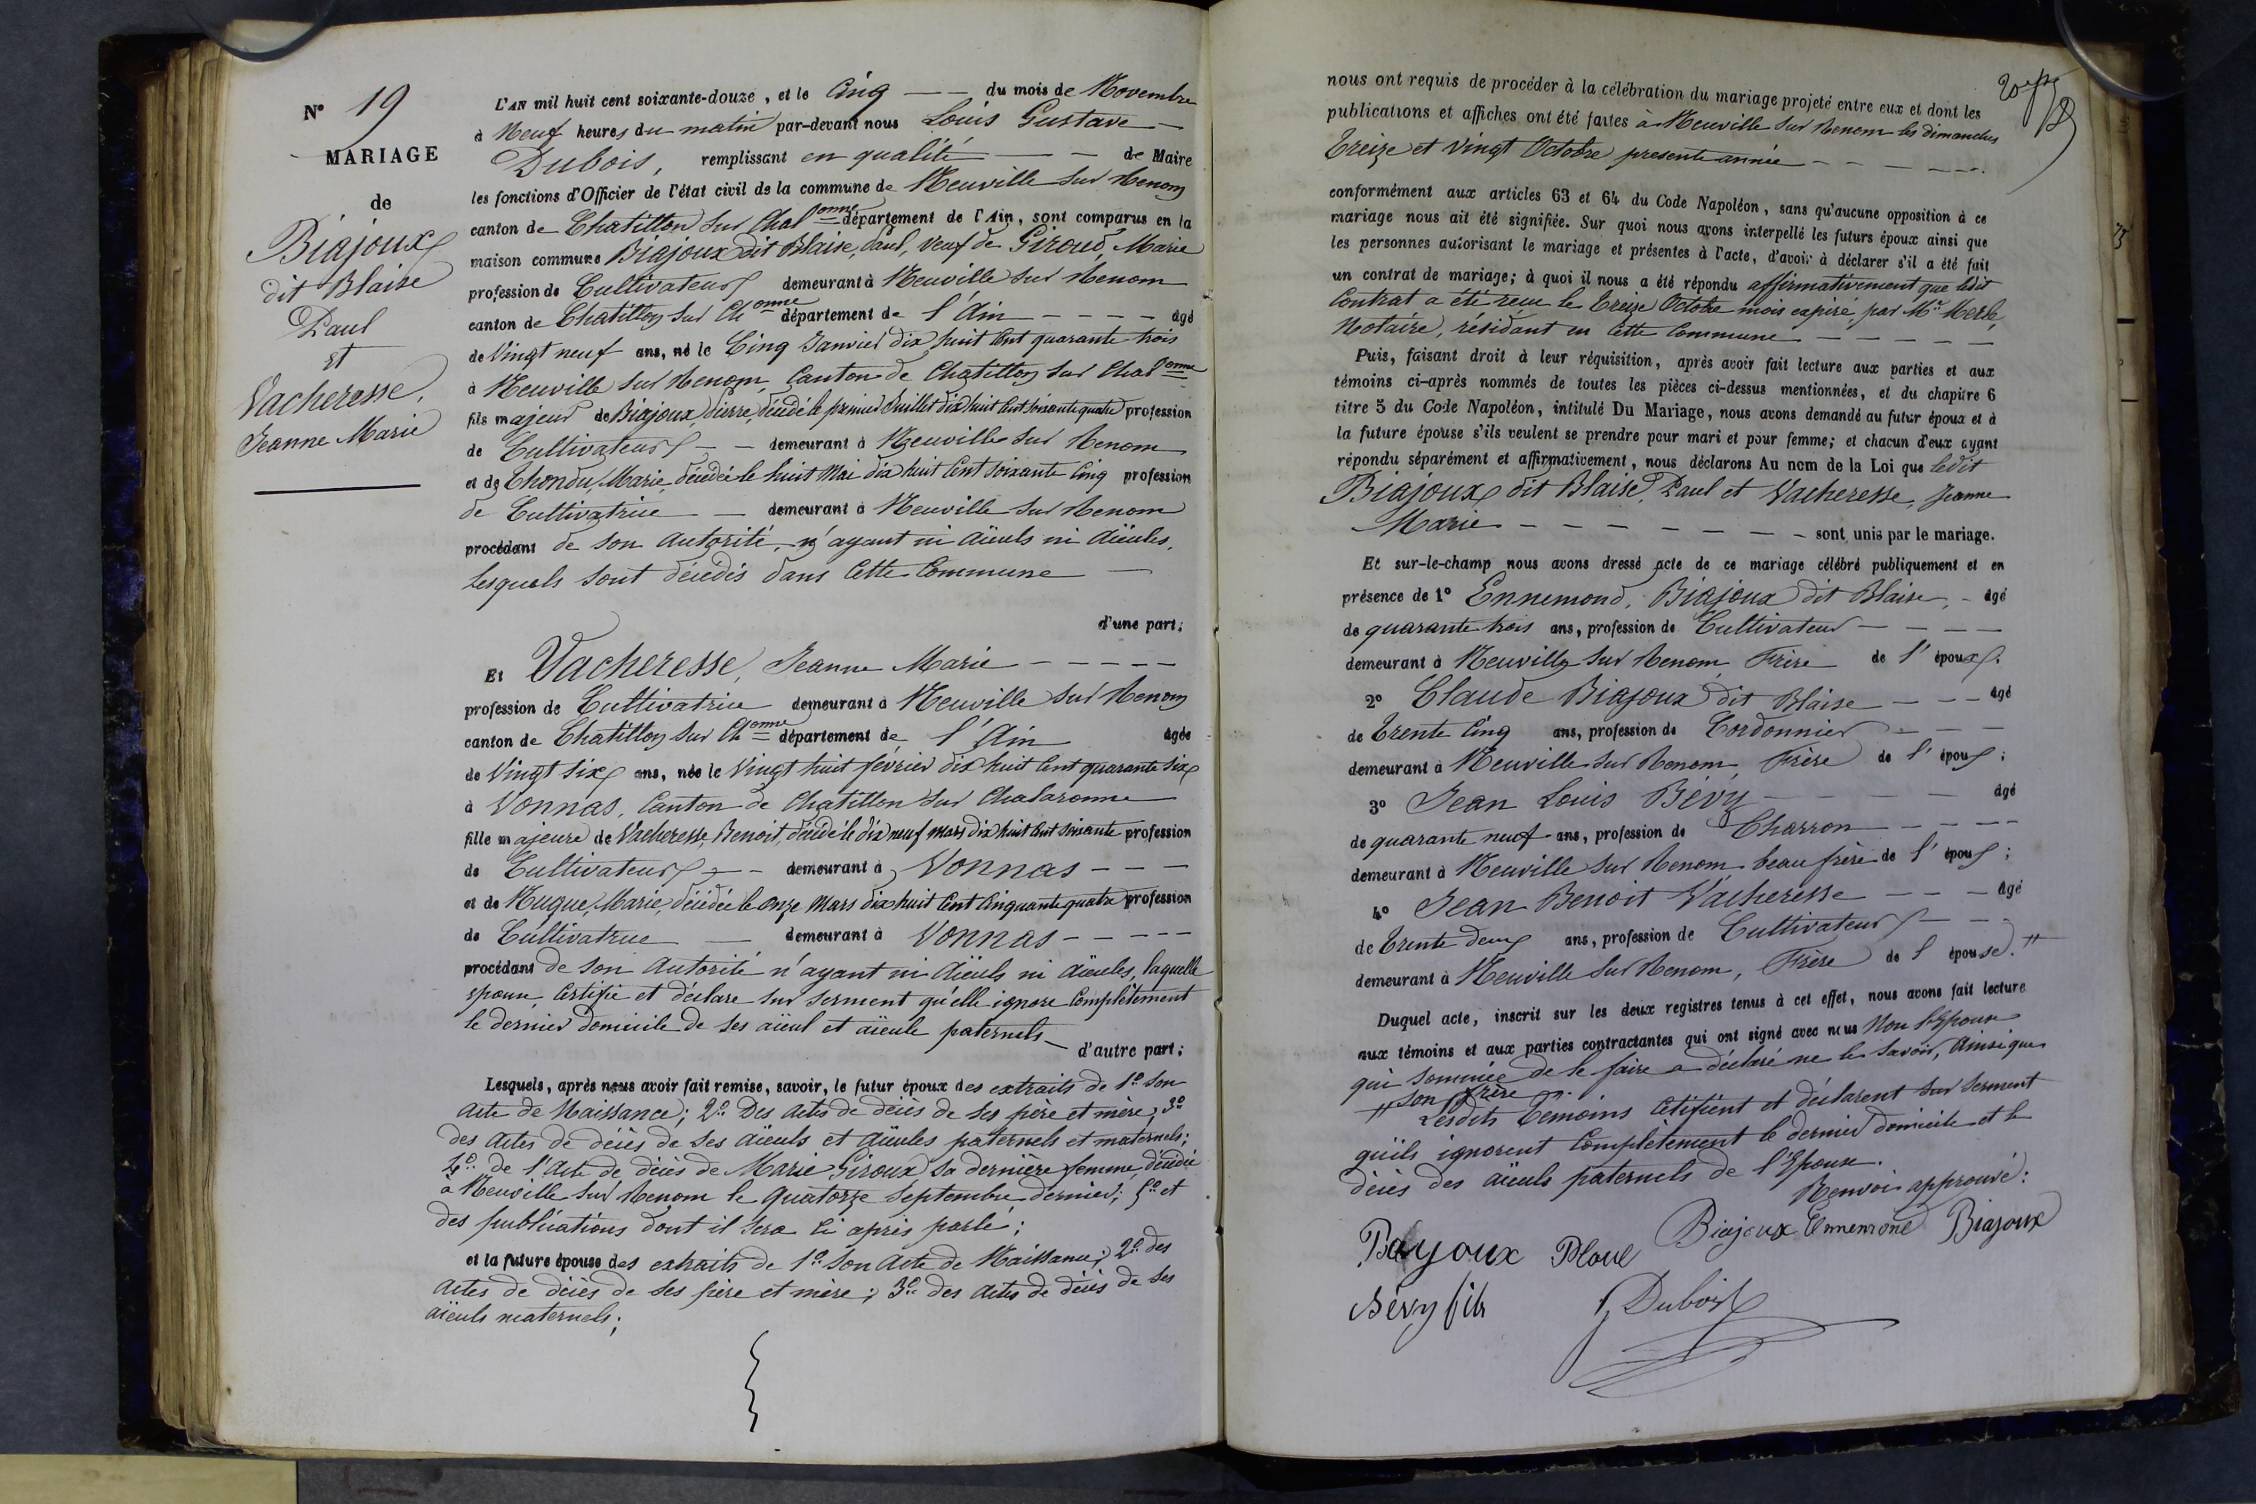 N° 19
MARIAGE
de
Biajoux
dit Blaise
Paul
et
Vacheresse,
Jeanne Marie
L'AN mil huit cent soixante-douze, et le Cinq du mois de Novembre
à Neuf heures du matin par-devant nous Louis Gustave
Dubois, remplissant en qualité de Maire
les fonctions d'Officier de l'état civil de la commune de Neuville sur Renom
canton de Chatillon sur Chalonne département de l'Ain, sont comparus en la
maison commune Biajoux dit Blaise, Paul, Veuf de Giroud, Marie
profession de Cultivateur demeurant à Neuville sur Renom
canton de Chatillon sur Chonne département de l'Ain âgé
de Vingt neuf ans, né le Cinq Janvier dix huit Cent quarante trois
à Neuville sur Renom, Canton de Chatillon sur Chalonne
fils majeur de Biajoux, Pierre, décédé le premier Juillet dix huit Cent soixante quatre profession
de Cultivateur demeurant à Neuville sur Renom
et de Chondu, Marie, décédée le huit Mai dix huit Cent soixante Cinq profession
de Cultivatrice demeurant à Neuville sur Renom
procédant de son Autorité, n'ayant ni Aïeuls ni Aïeules,
Lesquels sont décédés dans Cette Commune
d'une part;
Et Vacheresse, Jeanne Marie
profession de Cultivatrice demeurant à Neuville sur Renom
canton de Chatillon sur Chonne département de l'Ain âgée
de Vingt six ans, née le Vingt huit février dix huit Cent quarante six
à Vonnas, Canton de Chatillon sur Chalaronne
fille majeure de Vacheresse, Benoit, décédé le dix neuf mars dix huit Cent soixante profession
de Cultivateur demeurant à Vonnas
et de Nugue, Marie, décédée le onze Mars dix huit Cent Cinquante quatre profession
de Cultivatrice demeurant à Vonnas
procédant de son Autorité n'ayant ni Aïeuls ni Aïeules, laquelle
épouse, Certifie et déclare sur serment qu'elle ignore Complètement
le dernier domicile de ses aïeul et aïeule paternels
d'autre part;
Lesquels, après nous avoir fait remise, savoir, le futur époux des extraits de 1° Son
Acte de Naissance; 2° Des Actes de décès de ses père et mère; 3°
des Actes de décès de ses Aïeuls et Aïeules paternels et maternels;
4° de l'Acte de décès de Marie Giroux sa dernière femme, décédée
à Neuville sur Renom le quatorze Septembre dernier; 5° et
des publications dont il sera Ci après parlé;
et la future épouse des extraits de 1° Son Acte de Naissance; 2° des
Actes de décès de ses père et mère; 3° des Actes de décès de ses
aïeuls maternels;
nous ont requis de procéder à la célébration du mariage projeté entre eux et dont les
publications et affiches ont été faites à Neuville sur Renom les dimanches
Treize et Vingt Octobre présente année
conformément aux articles 63 et 64 du Code Napoléon, sans qu'aucune opposition à ce
mariage nous ait été signifiée. Sur quoi nous avons interpellé les futurs époux ainsi que
les personnes autorisant le mariage et présentes à l'acte, d'avoir à déclarer s'il a été fait
un contrat de mariage; à quoi il nous a été répondu affirmativement que ledit
Contrat a été reçu le Treize Octobre mois expiré, par Mr Merle,
Notaire, résidant en Cette Commune
Puis, faisant droit à leur réquisition, après avoir fait lecture aux parties et aux
témoins ci-après nommés de toutes les pièces ci-dessus mentionnées, et du chapitre 6
titre 5 du Code Napoléon, intitulé Du Mariage, nous avons demandé au futur époux et à
la future épouse s'ils veulent se prendre pour mari et pour femme; et chacun d'eux ayant
répondu séparément et affirmativement, nous déclarons Au nom de la Loi que ledit
Biajoux dit Blaise, Paul et Vacheresse, Jeanne
Marie sont unis par le mariage.
Et sur-le-champ nous avons dressé acte de ce mariage célébré publiquement et en
présence de 1° Ennemond, Biajoux dit Blaise, âgé
de quarante trois ans, profession de Cultivateur
demeurant à Neuville sur Renom, Frère de l'époux.
2° Claude Biajoux dit Blaise âgé
de Trente Cinq ans, profession de Cordonnier
demeurant à Neuville sur Renom, Frère de l'époux;
3° Jean Louis Bévy âgé
de quarante neuf ans, profession de Charron
demeurant à Neuville sur Renom beau frère de l'époux;
4° Jean Benoit Vacheresse âgé
de Trente deux ans, profession de Cultivateur
demeurant à Neuville sur Renom, Frère de l'épouse. #
Duquel acte, inscrit sur les deux registres tenus à cet effet, nous avons fait lecture
aux témoins et aux parties contractantes qui ont signé avec nous Non l'Epouse
qui sommée de le faire a déclaré ne le savoir, Ainsi que
son frère.
# Lesdits Témoins Cetifient et déclarent sur serment
qu'ils ignorent Complètement le dernier domicile et le
décès des aïeuls paternels de l'Epouse.
Renvoi approuvé:
Bayoux Ploul Biajoux Ennemond Biajoux
Bévy fils G Dubois